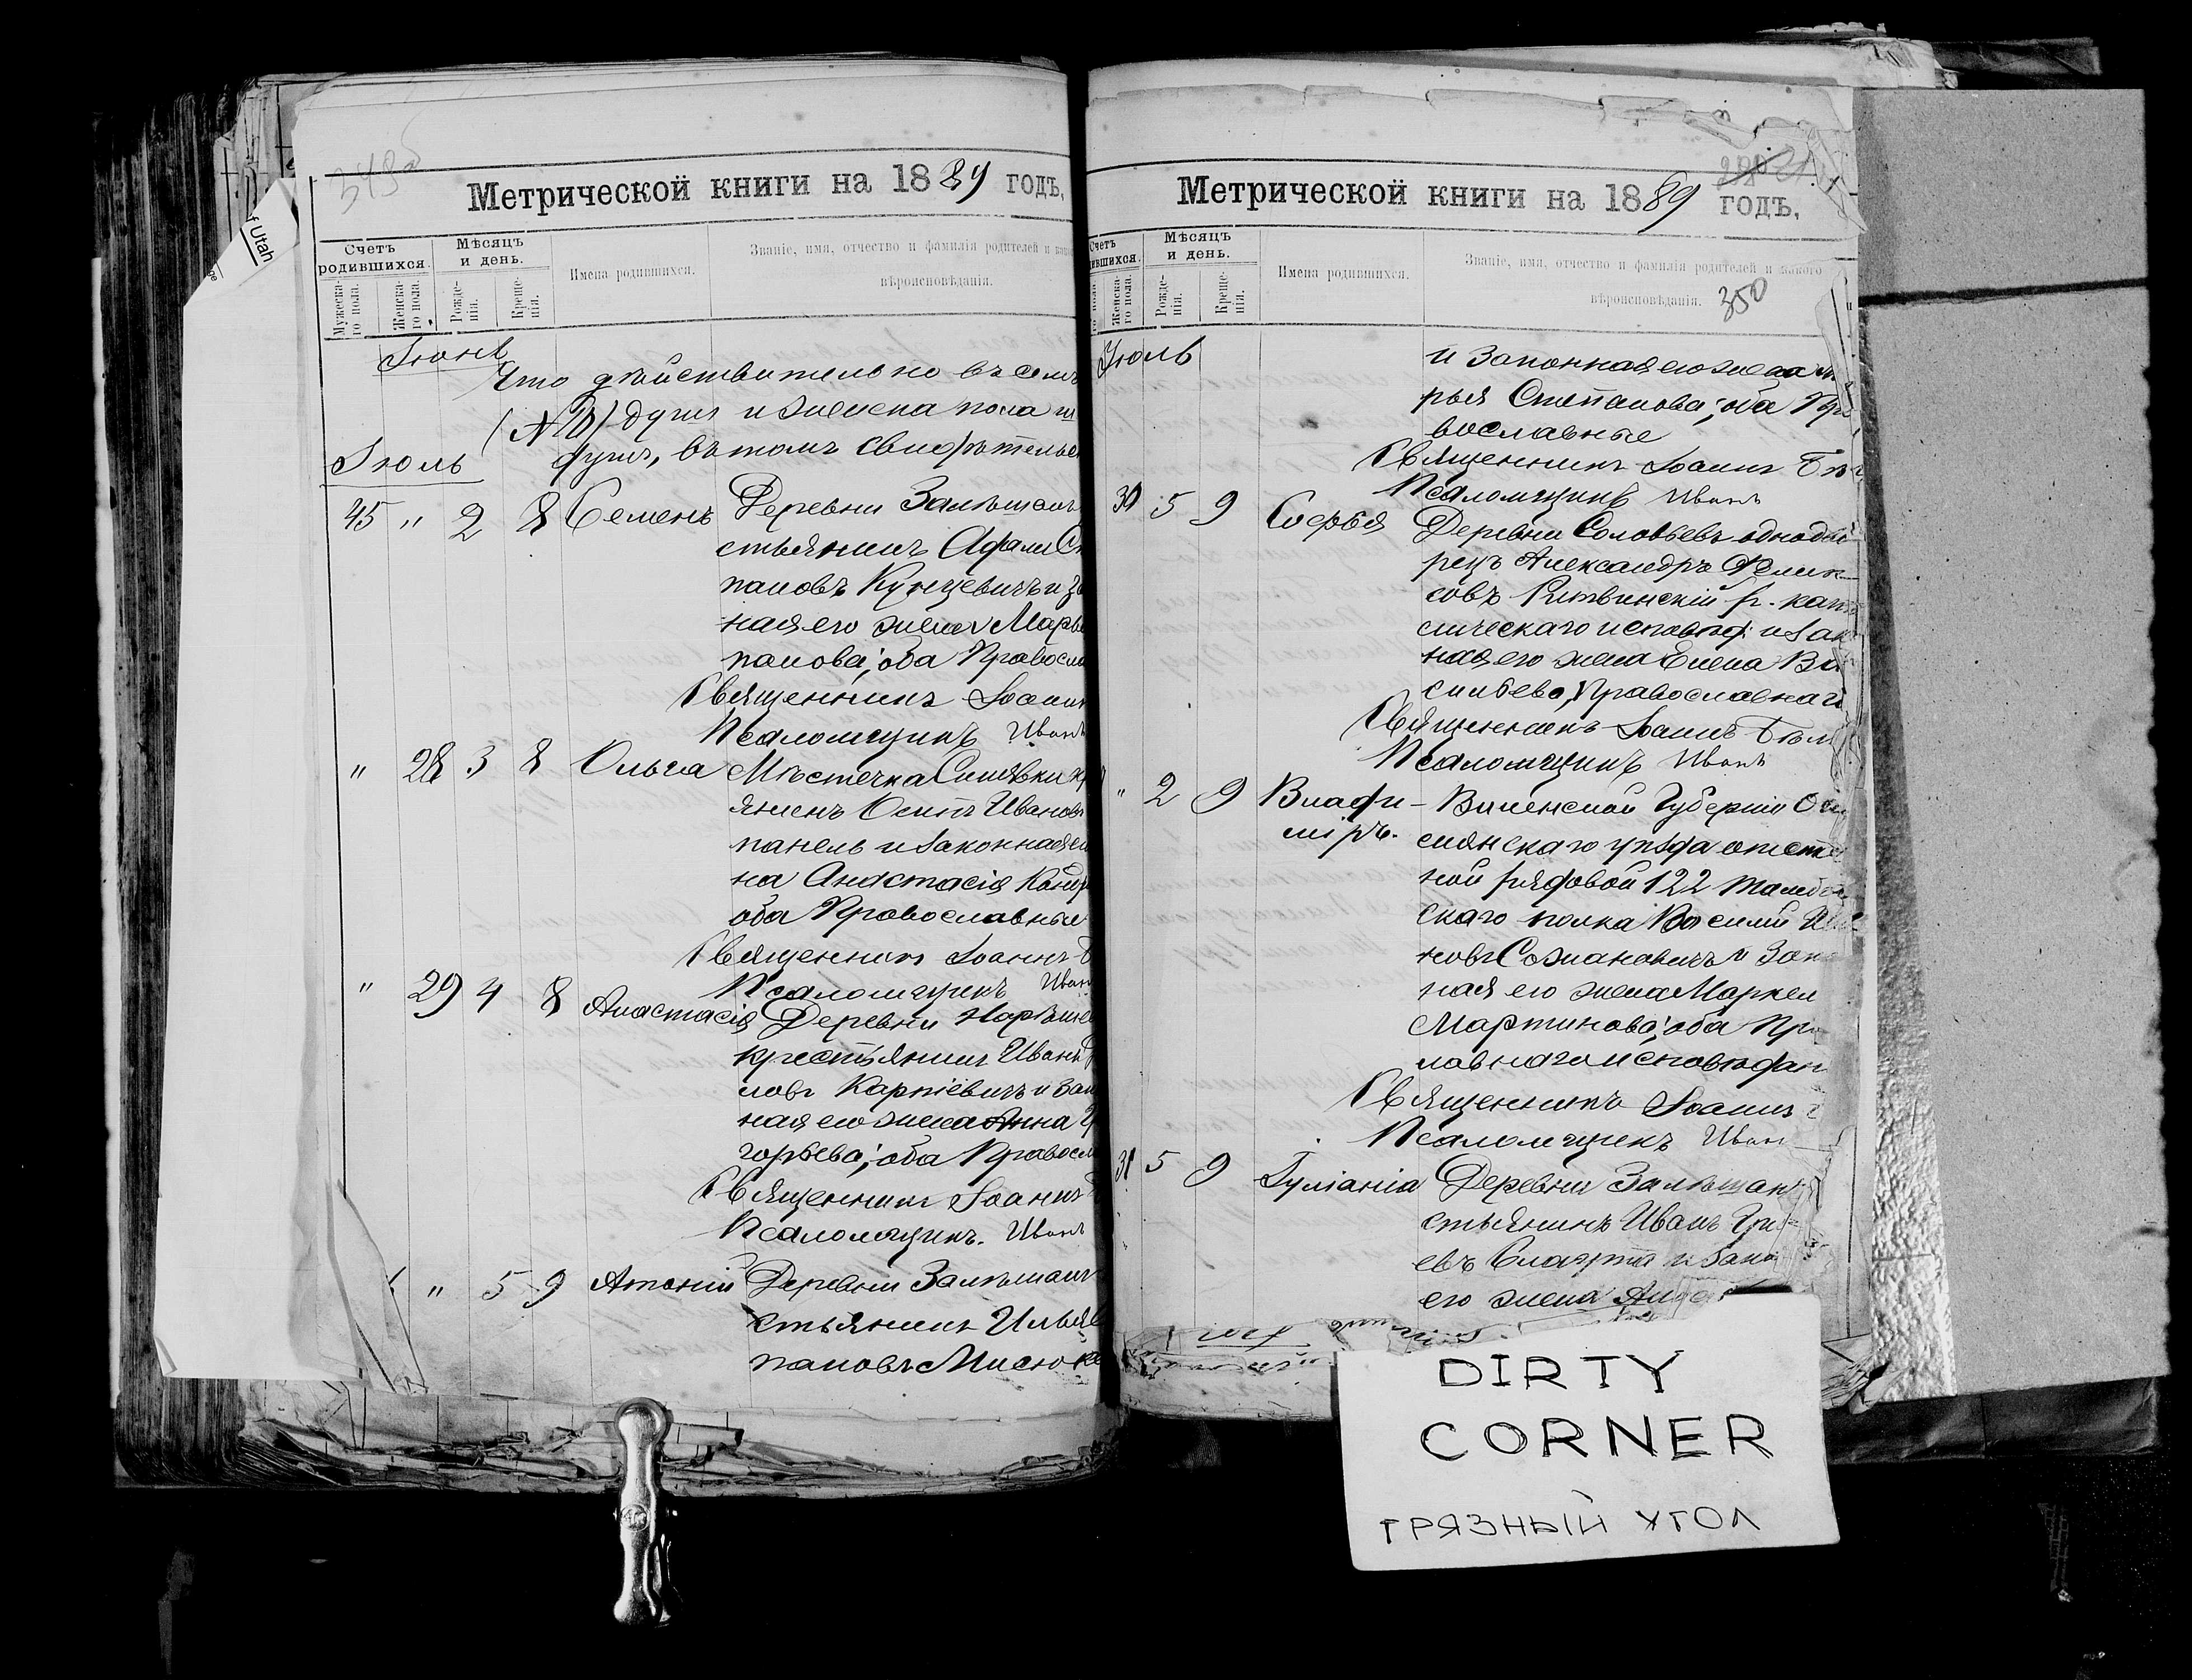 Метрической книги на 1889 годъ,
Счетъ родившихся.
Мужеска-го пола.
Женска-го пола.
Мѣсяцъ и день.
Рожде-нія.
Креще-нія.
Имена родившихся.
Званіе, имя, отчество и фамилія родителей и
вѣроисповѣданія.
Іюнь
Что дѣйствительно въ семъ
душъ и женска пола
душъ, въ томъ свидѣтельс
Іюль
45 " 2 8 Семенъ Деревни Залѣшанъ
стьянинъ Адамъ С
пановъ Кунцевичъ и за
ная его жена Марья
панова; оба Правосла
Священникъ Іоаннъ
Псаломщикъ Иванъ
" 28 3 8 Ольга Мѣстечка Синявки кр
янинъ Осипъ Ивановъ
панель и законная е
на Анастасія Конд
оба Православные
Священникъ Іоаннъ
Псаломщикъ Иванъ
" 29 4 8 Анастасія Деревни
крестьянинъ Иванъ
новъ Карпіевичъ и зак
ная его жена Анна Г
горьева; оба Правосл
Священникъ Іоаннъ
Псаломщикъ. Иванъ
" 5 9 Антоній Деревни Залѣшанъ
стьянинъ Илья С
пановъ Мисюк
f Utah
Метрической книги на 1889 годъ,
Счетъ
ившихся.
го пола
Женска-го пола.
Мѣсяцъ и день.
Рожде-нія.
Креще-нія.
Имена родившихся.
Званіе, имя, отчество и фамилія родителей и какого
вѣроисповѣданія.
350
Іюль
и законная его жена Ма
рья Степанова; оба Пра
вославные
Священникъ Іоаннъ Бѣл
Псаломщикъ Иванъ
30 5 9 Софья Деревни Соловьевъ однодво
рецъ Александръ Фелик
совъ Ритвинскій р. кат
лическаго исповѣд. и зак
ная его жена Елена Ва
сильева, Православнаго
Священникъ Іоаннъ Бѣл
Псаломщикъ Иванъ
" 2 9 Влади- Виленской Губерніи Ош
міръ. мянскаго уѣзда отстав
ной рядовой 122 Тамбов
скаго полка Василій Ива
новъ Сожановичъ и Зак
ная его жена Маркел
Мартинова; оба Пра
лавнаго исповѣдан
Священникъ Іоаннъ
Псаломщикъ Иван
31 5 9 Іуліанія Деревни Залѣшан
стьянинъ Иванъ Гри-
евъ и Зако
его жена
DIRTY
CORNER
ГРЯЗНЫЙ УГОЛ